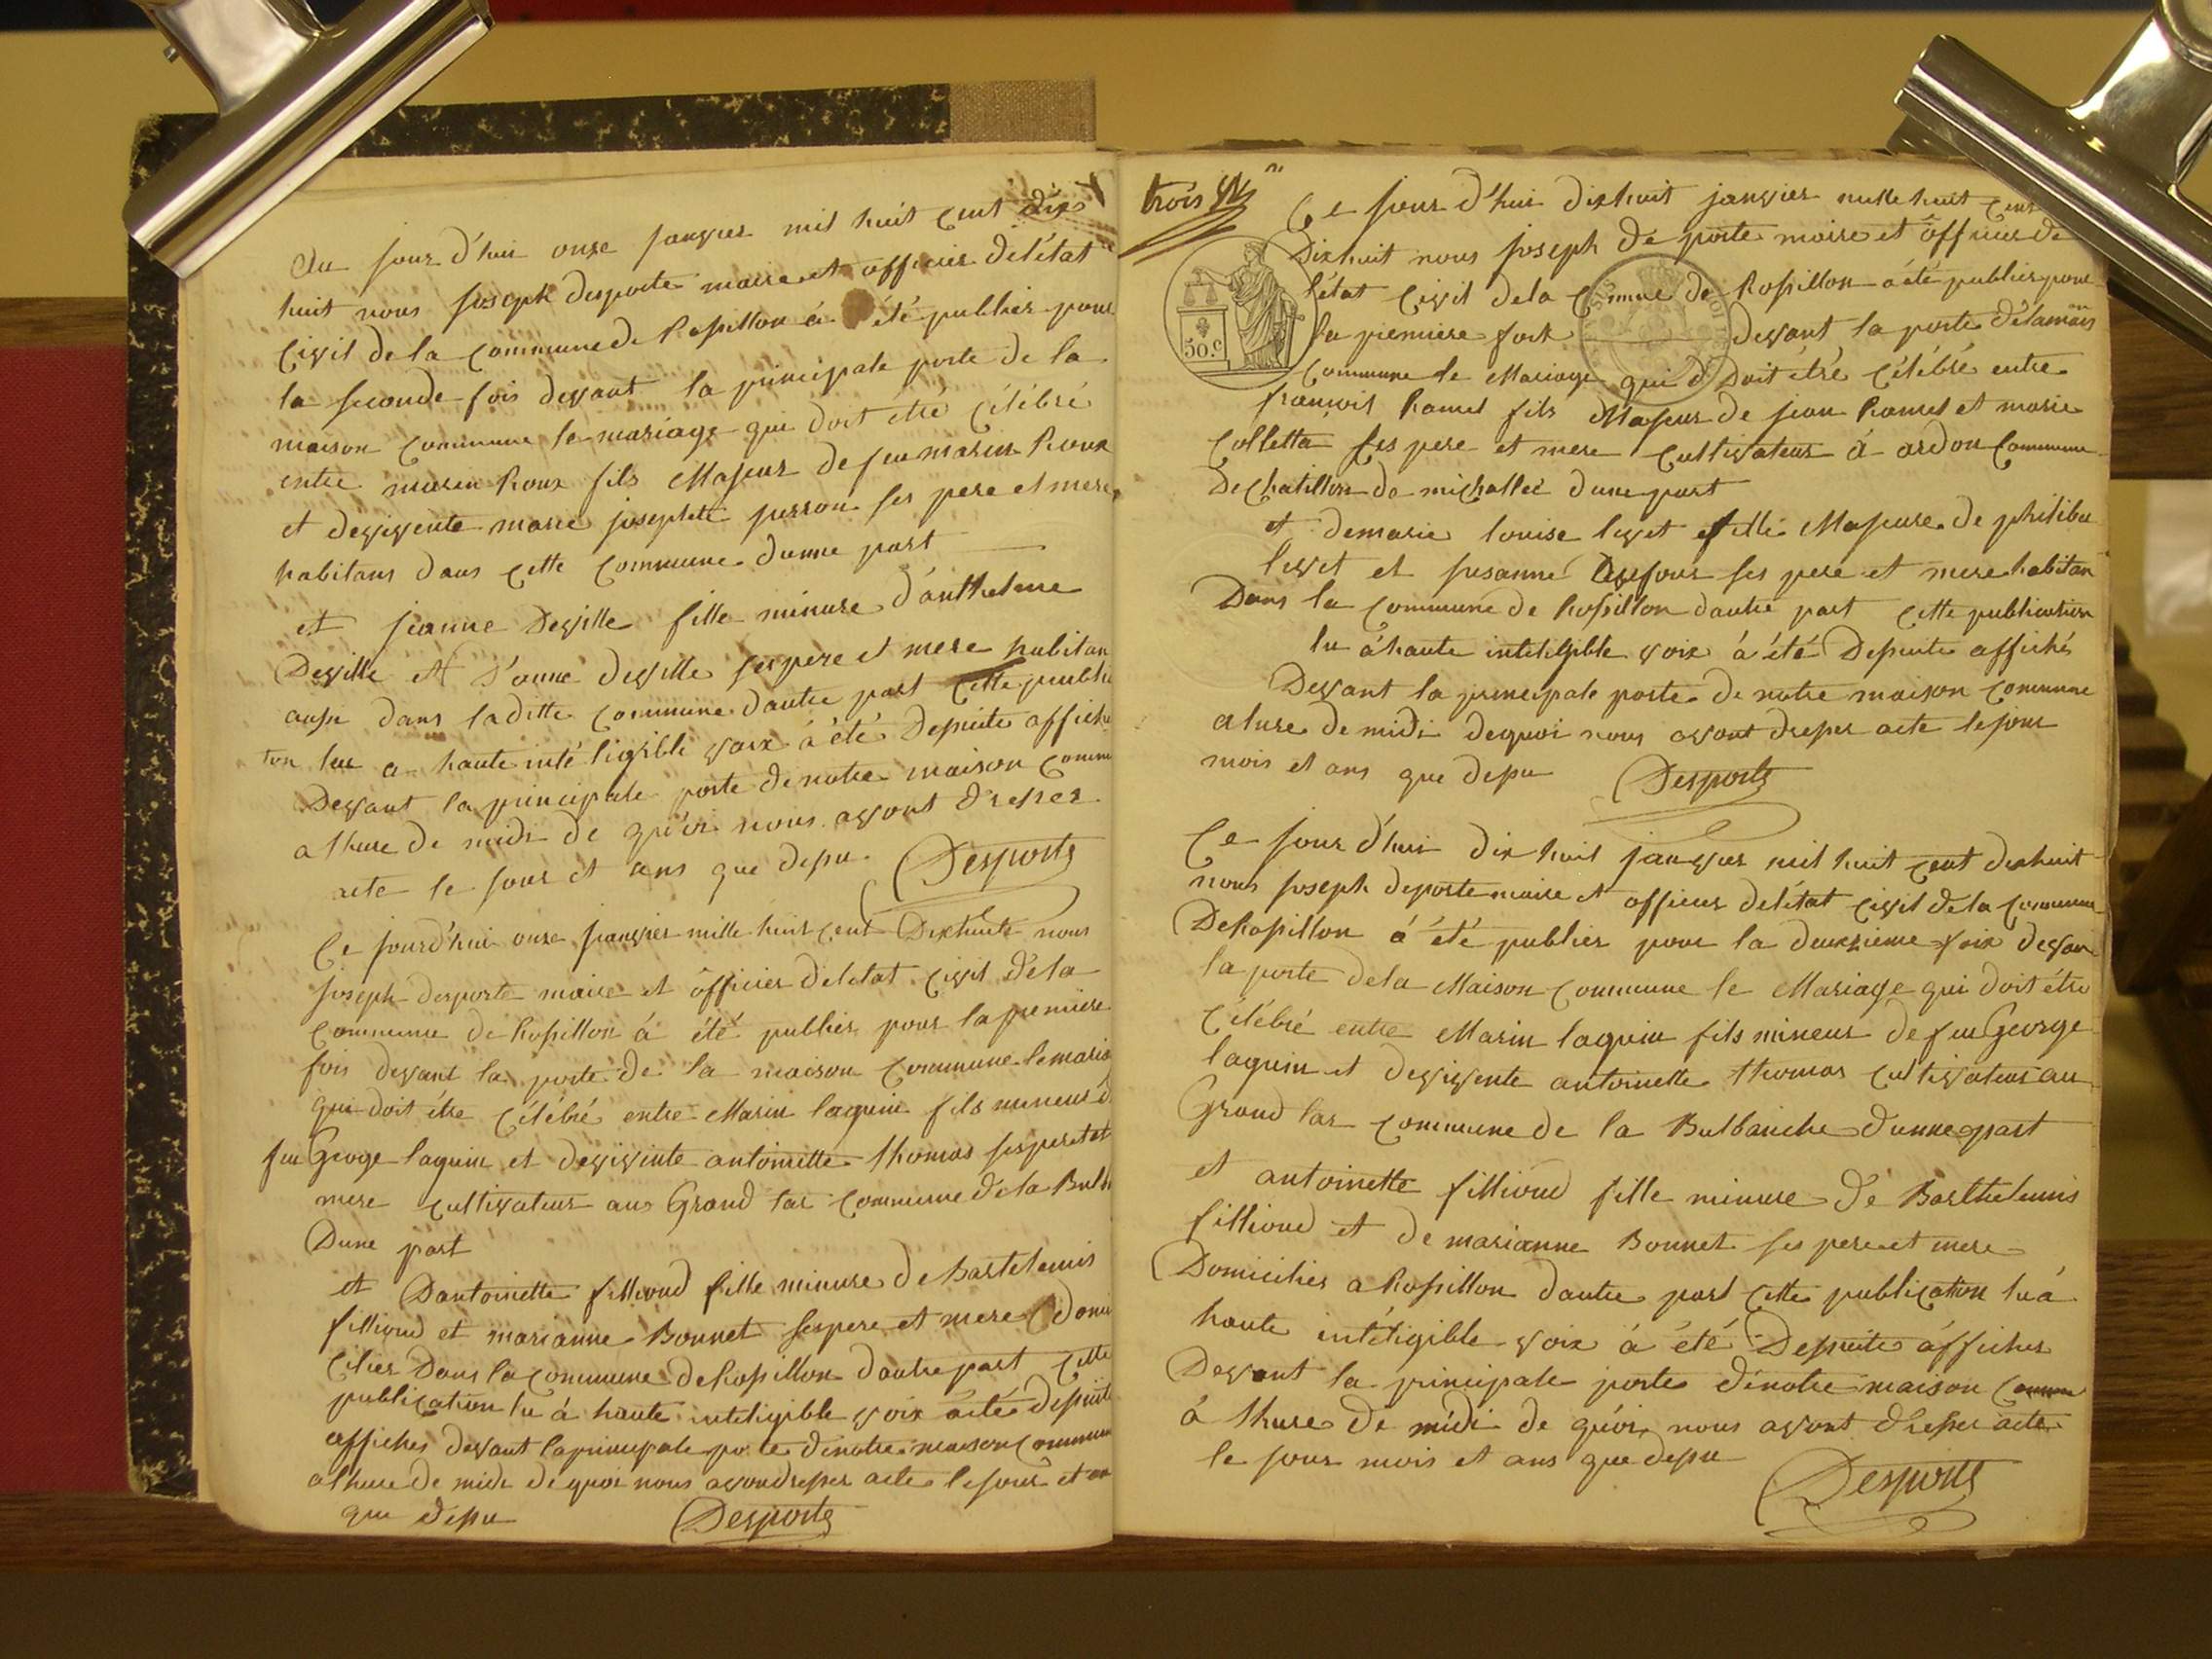 Au jour d'hui onze janvier mil huit cent dix
huit nous joseph desporte maire et officier de l'état
civil de la commune de Rossillon à été publier pour
la seconde fois devant la principale porte de la
maison commune le mariage qui doit être célébré
entre marin Roux fils Majeur de feu marin Roux
et devivente marie josephte perron ses pere et mere
habitans dans cette commune dunne part
et jeanne Deville fille minure d'anthelme
Deville et d'anne deville ses pere et mere habitan
aussi dans laditte commune dautre part cette publi
tion lue a haute inté ligible voix à été Desuite affiche
Devant la principale porte de notre maison comm
a lhure de midi de quoi nous avont dresser
acte le jour et ans que dessu Desporte
Ce jourd'hui onze janvier mille huit cent Dixhuite nous
joseph desporte maire et officier deletat civil de la
commune de Rossillon à été publier pour la premiere
fois devant la porte de la maison commune le maria
qui doit être célébré entre Marin laguin fils mineur d
feu Geoge laguin et devivente antoinette thomas ses pere et
mere cultivateur au Grand lar commune de la Bulb
Dune part
et Dantoinette fillioud fille minure de Bartelemis
fillioud et marianne Bonnet ses pere et mere Domi
cilier Dans la commune de Rossillon dautre part cette
publication lu à haute inteligible voix àété desuite
affiches devant la principale porte denotre maison commun
a lhure de midi de quoi nous avondresser acte le jour et an
que dessu Desporte
trois
Ce jour d'hui dixhuit janvier mille huit cent
Dixhuit nous joseph de porte maire et officier de
l'état civil dela Cmune de Rossillon a été publier pour
la premiere fois devant la porte de la mais
commune le Mariage qui d Doit être célébré entre
françois Ramel fils Majeur de jean Ramel et marie
Colletta ses pere et mere cultivateur à ardon Commune
De chatillon de michallec dune part
et demarie louise levet fille Majeure de philibe
levet et susanne ses pere et mere habitan
Dans la commune de Rossillon dautre part cette publication
lu à haute inteligible voix à été Desuite affichés
Devant la principale porte de notre maison commune
a lure de midi dequoi nous avont dresser acte le jour
mois et ans que dessu Desporte
Ce jour d'hui dix huit janvier mil huit cent dixhuit
nous joseph deporte maire et officier del'état civil de la commune
De Rossillon à été publier pour la deuxzieme foix devan
la porte dela Maison commune le Mariage qui doit être
célébré entre Marin laguin fils mineur de feu George
laguin et devivente antoinette thomas cultivateur au
Grand lar commune de la Bulbanche dunne part
et antoinette fillioud fille minure de Barthelemis
fillioud et de marianne Bonnet ses pere et mere
Domicilier a Rossillon dautre part cette publication lu à
haute intéligible voix à été Desuite afficher
Devant la principale porte denotre maison Comune
à lhure de midi de quoi nous avont dresser acte
le jour mois et ans que dessu
Desporte
50.c